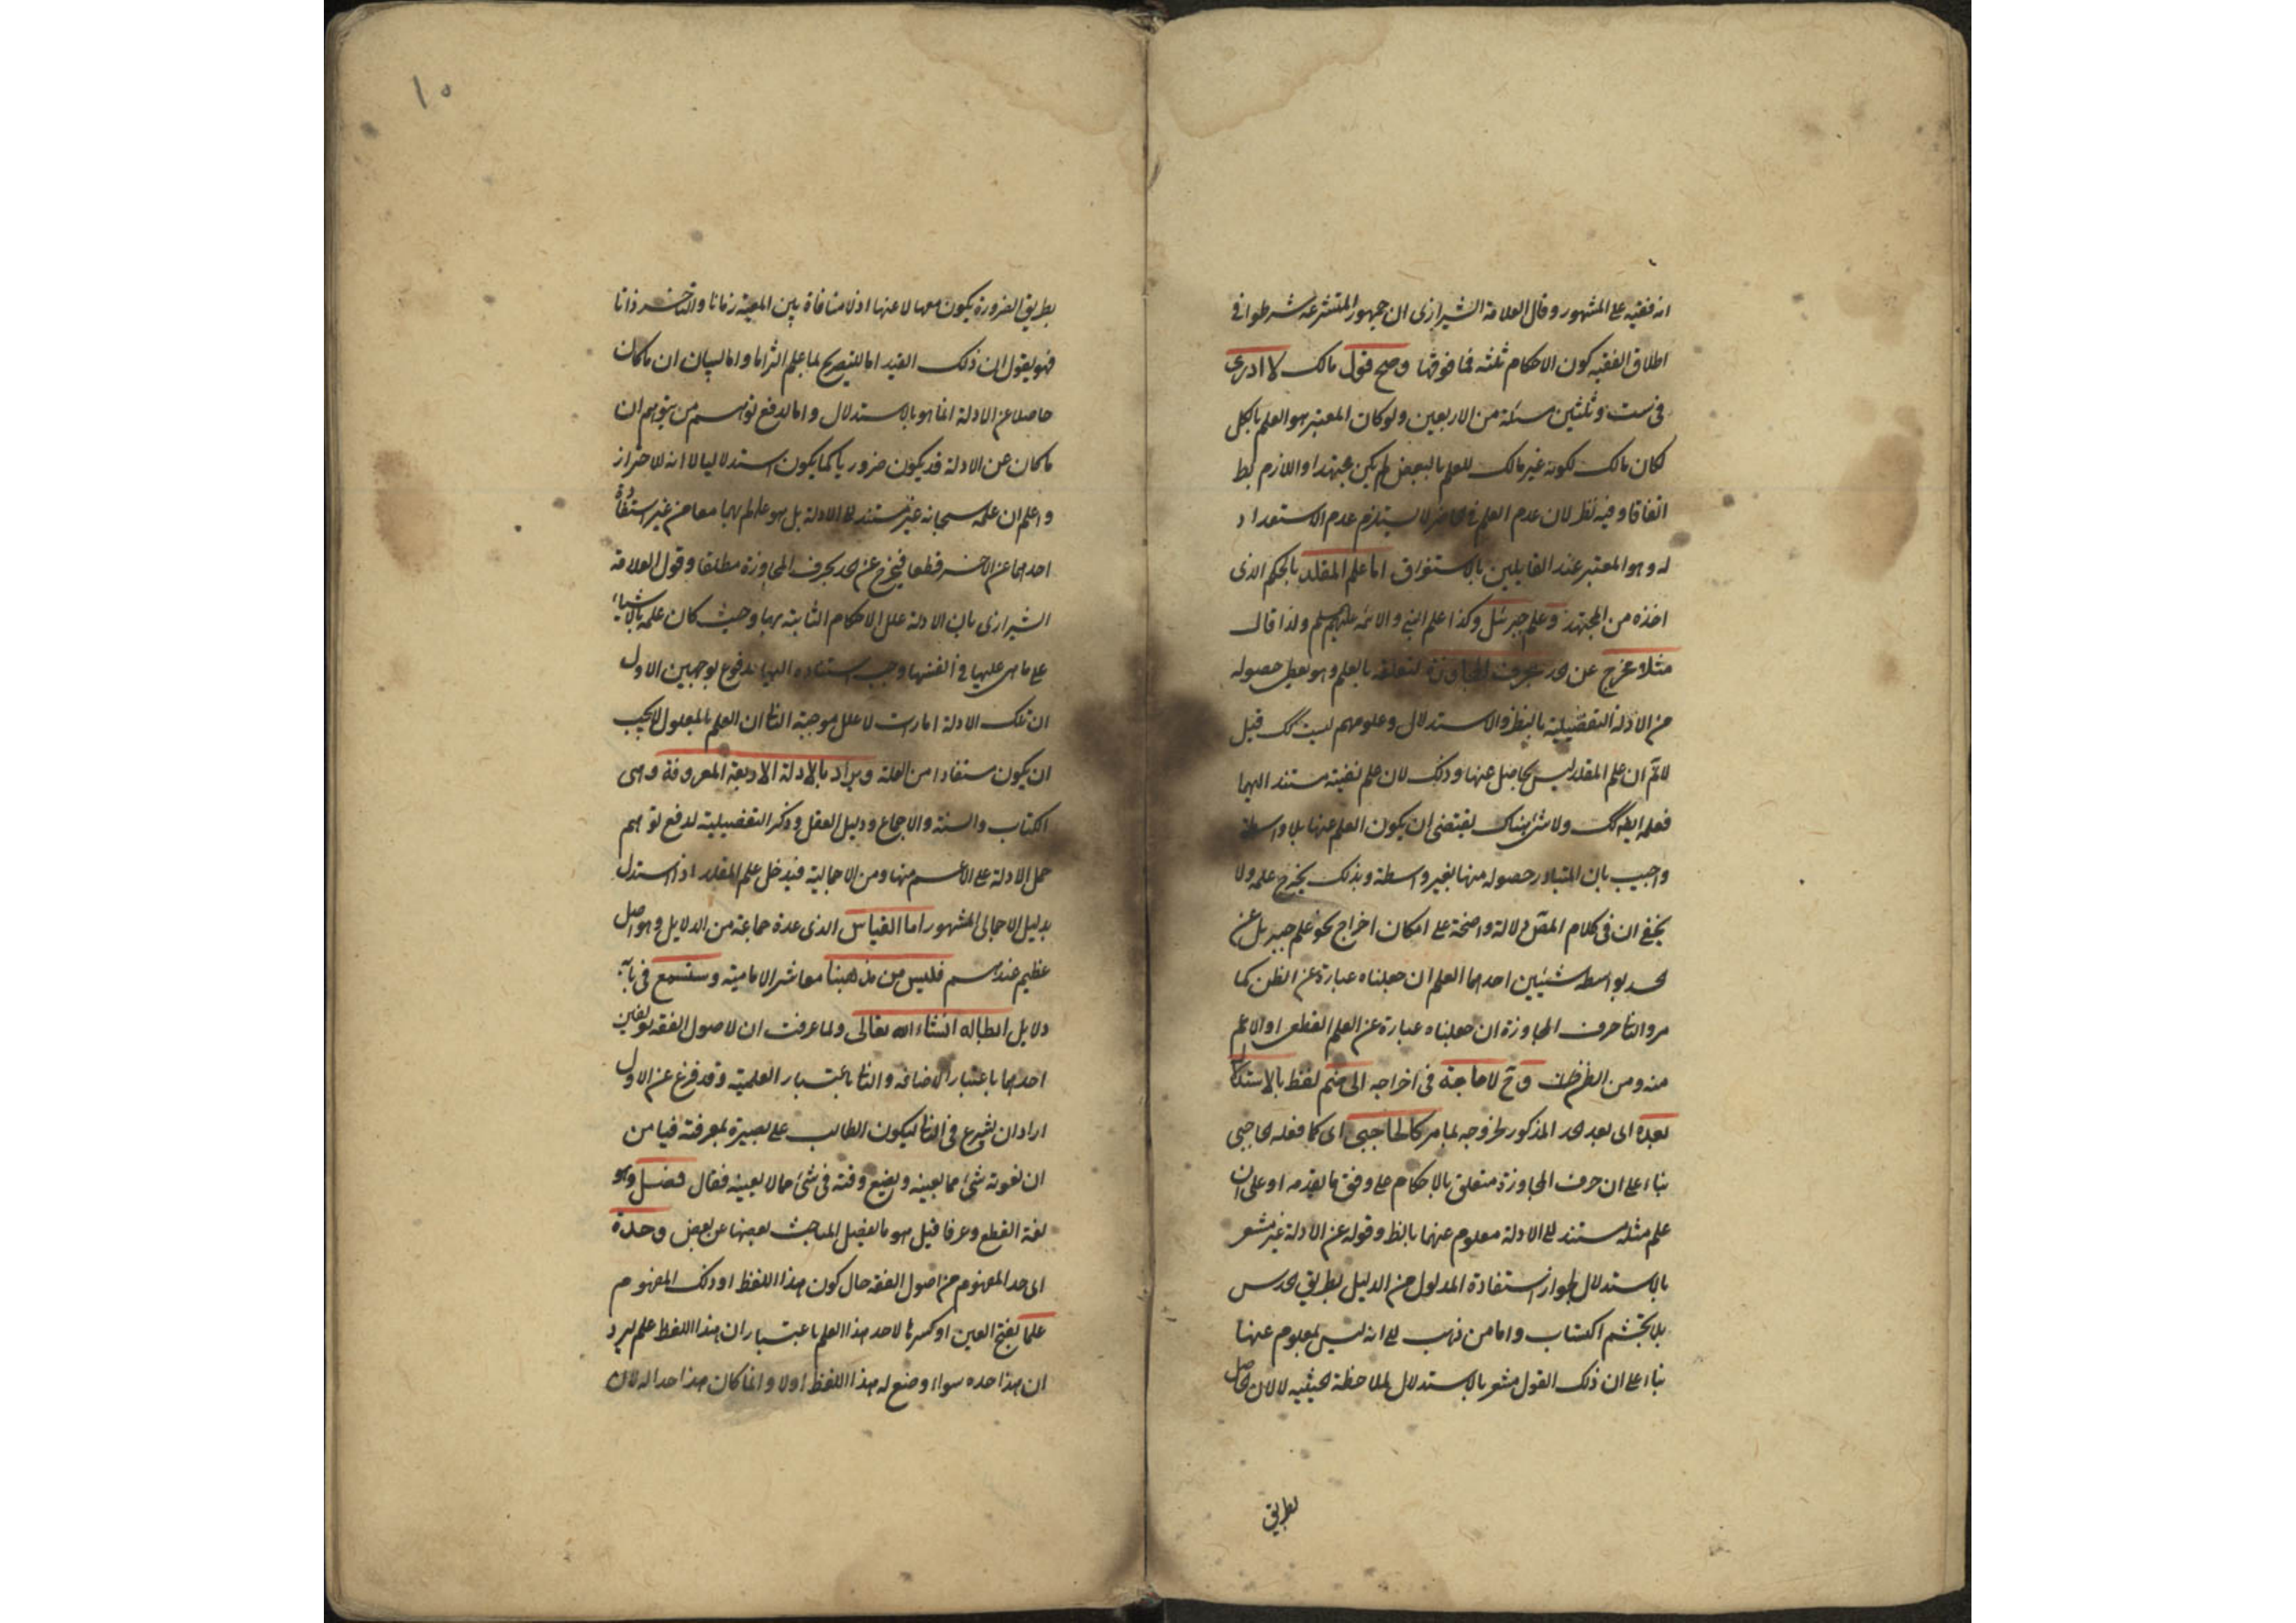 انه فقيه على المشهور وقال العلامة الشيرازى ان جمهور المتشرعه شرطوا فى
اطلاق الفقيه كون الاحكام ثلثه فما فوقها وصح قول مالك لا ادرى
فى ست وثلثين مسئلة من الاربعين ولو كان المعتبر هو العلم بالكل
لكان مالك لكونه غير مالك للعلم بالبعض لم يكن مجتهدا واللازم بط
اتفاقا وفيه نظر لان عدم العلم فى الحاضر لا يستلزم عدم الاستعداد
له وهو المعتبر عند القايلين بالاستغراق اما علم المقلد بالحكم الذى
اخذه من المجتهد وعلم جبرئيل وكذا علم النبى والائمه عليهم ولذا قال
مثلا مخرج عن الحد بحرف المجاوزة لتعلقه بالعلم وهو يعطى حصوله
من الادلة التفصيلية بالنظر والاستدلال وعلومهم ليست كك قيل
لانم ان علم المقلد ليس بحاصل عنها وذلك لان علم مفتيه مستند اليها
فعلمه ايضا كك ولا شئ هناك يقتضى ان يكون العلم عنها بلا واسطة
واجيب بان المتبادر حصوله منها بغير واسطة وبذلك يخرج علمه ولا
يخفى ان فى كلام المص دلالة واضحة على امكان اخراج نحو علم جبريل عن
الحد بواسطه شيئين احدهما العلم ان جعلناه عبارة عن الظن كما
مر والثانى حرف المجاوزة ان جعلناه عبارة عن العلم القطعى او الاعم
منه ومن الظن وح لا حاجة فى اخراجه الى ضم لفظ بالاستدلال
بعده اى بعد الحد المذكور لخروجه بما مر كالحاجبى اى كما فعله الحاجبى
بناء على ان حرف المجاوزة متعلق بالاحكام على وفق ما يقدمه او على ان
علم مثله مستند الى الادلة معلوم عنها بالنظر وقوله عن الادلة غير مشعر
بالاستدلال لجواز استفادة المدلول من الدليل بطريق الحدس
بلا تجشم اكتساب واما من ذهب الى انه ليس بمعلوم عنها
بناء على ان ذلك القول مشعر بالاستدلال لملاحظة الحيثيه لا لان الحاصل
بطريق
١٠
بطريق الضرورة يكون معها لا عنها اذ لا منافاة بين المعية زمانا والتاخر ذاتا
فهو يقول ان ذلك القيد اما للتصريح بما علم التزاما واما لبيان ان ما كان
حاصلا عن الادلة انما هو بالاستدلال واما لدفع توهم من يتوهم ان
ما كان عن الادلة قد يكون ضروريا كما يكون استدلاليا لا انه للاحتراز
واعلم ان علمه سبحانه غير مستند الى الادلة بل هو عالم بهما معا من غير استفادة
احدهما عن الاخر قطعا فيخرج عن الحد بحرف المجاوزة مطلقا وقول العلامة
الشيرازى بان الادلة علل الاحكام الثابتة بها وحيث كان علمه بالاشياء
على ما هى عليها فى انفسها وجب استناده اليها مدفوع بوجهين الاول
ان تلك الادلة امارات لا علل موجبة الثانى ان العلم بالمعلول لا يجب
ان يكون مستفادا من العلة ويراد بالادلة الاربعة المعروفة وهى
الكتاب والسنة والاجماع ودليل العقل وذكر التفصيلية لدفع توهم
حمل الادلة على الاعم منها ومن الاجمالية فيدخل علم المقلد اذا استدل
بدليل الاجمالى المشهور اما القياس الذى عده جماعة من الدلايل وهو اصل
عظيم عندهم فليس من مذهبنا معاشر الامامية وستسمع فى بابه
دلايل ابطاله انشاء الله تعالى ولما عرفت ان لاصول الفقه تعريفين
احدهما باعتبار الاضافه والثانى باعتبار العلمية وقد فرغ عن الاول
اراد ان يشرع فى الثانى ليكون الطالب على بصيرة بمعرفته فيامن
ان يفوته شئ مما يعينه ويضيع وقته فى شئ مما لا يعينه فقال فصل وهو
لغة القطع وعرفا قيل هو ما يفصل المباحث بعضها عن بعض وحده
اى حد المفهوم من اصول الفقه حال كون هذا اللفظ او ذلك المفهوم
علما بفتح العين او كسرها لاحد هذا العلم باعتبار ان هذا اللفظ علم ليرد
ان هذا حده سواء وضع له هذا اللفظ اولا وانما كان هذا حدا له لان